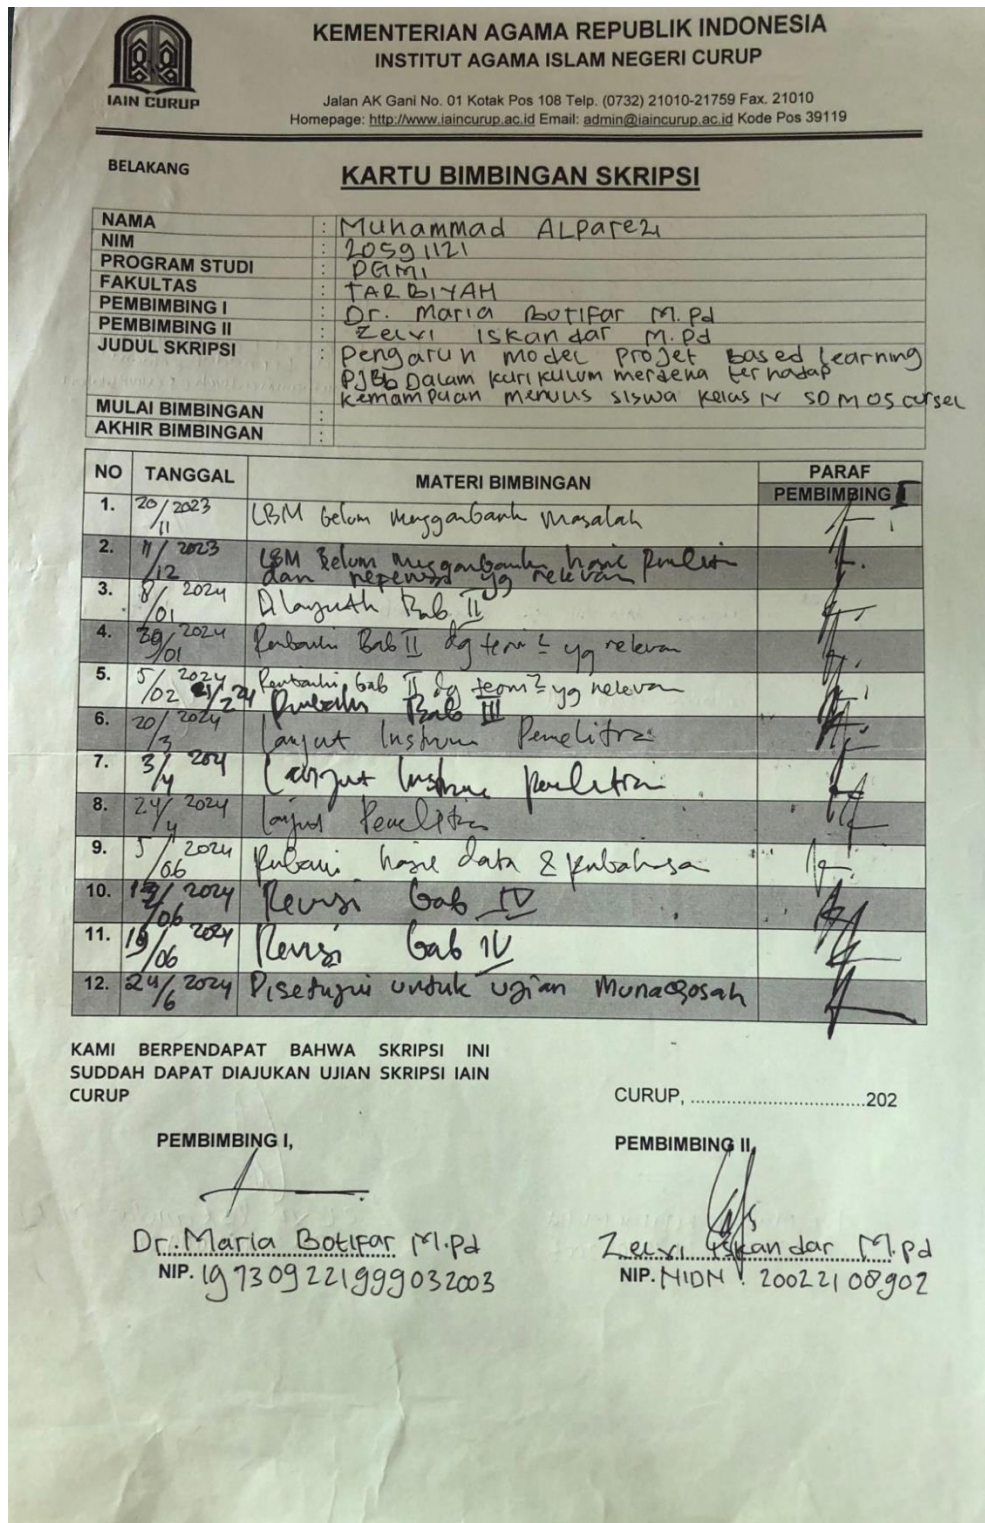 KEMENTERIAN AGAMA REPUBLIK INDONESIA
INSTITUT AGAMA ISLAM NEGERI CURUP
IAIN CURUP
Jalan AK Gani No. 01 Kotak Pos 108 Telp. (0732) 21010-21759 Fax. 21010
Homepage: http://www.iaincurup.ac.id Email: admin@iaincurup.ac.id Kode Pos 39119
BELAKANG
KARTU BIMBINGAN SKRIPSI
NAMA : Muhammad ALParezi
NIM : 20591121
PROGRAM STUDI : PGMI
FAKULTAS : TARBIYAH
PEMBIMBING I : Dr. Maria Botifar M.Pd
PEMBIMBING II : Zelvi Iskandar M.Pd
JUDUL SKRIPSI : Pengaruh model Projet Based Learning
Dalam kurikulum merdeka terhadap
kemampuan menulis siswa kelas IV SDM 05
MULAI BIMBINGAN :
AKHIR BIMBINGAN :
NO TANGGAL MATERI BIMBINGAN PARAF
PEMBIMBING I
1. 20/11 2023 LBM belum masalah
2. /12 2023 LBM belum hasil
dan yg relevan
3. 8/01 2024 Bab II
4. /01 2024 Bab II dg teori2 yg relevan
5. 5/02 2024 bab II dg teori2 yg relevan
Bab III
6. 20/3 2024 Lanjut Penelitian
7. 3/4 Lanjut penelitian
8. 24/4 2024 Lanjut Penelitian
9. 5/06 2024 hasil data &
10. /06 2024 Revisi bab IV
11. 19/06 2024 Revisi bab IV
12. 24/6 2024 Disetujui untuk ujian Munaqosah
KAMI BERPENDAPAT BAHWA SKRIPSI INI
SUDDAH DAPAT DIAJUKAN UJIAN SKRIPSI IAIN
CURUP
CURUP, ................................202
PEMBIMBING I, PEMBIMBING II,
Dr. Maria Botifar M.Pd Zelvi Iskandar M.Pd
NIP. 197309221999032003 NIP. NIDN : 20022108902